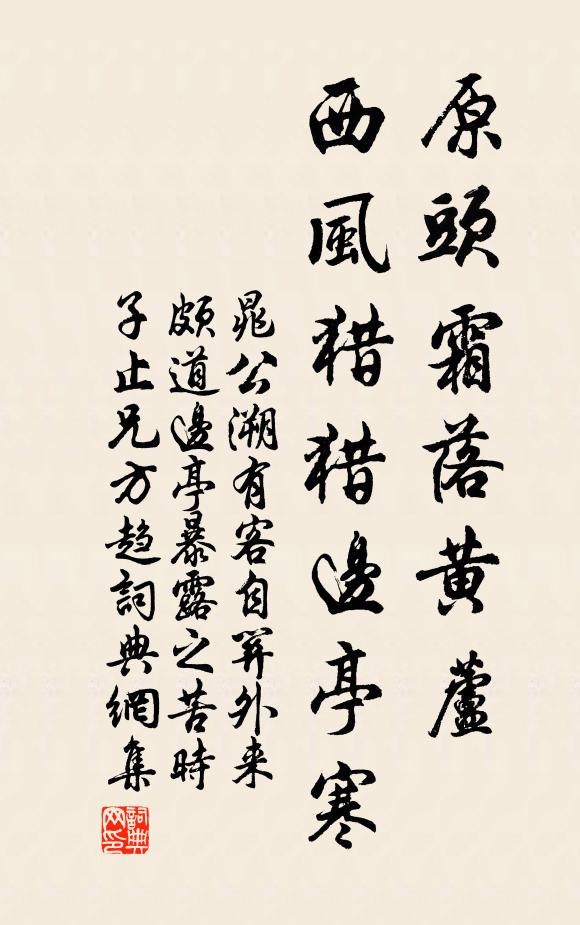 原頭霜落黃蘆
西風猎猎邊亭寒
晁公溯有客自筭外来
頗道邊亭暴露之苦時
子止兄方趋詞典網集
詞典网印